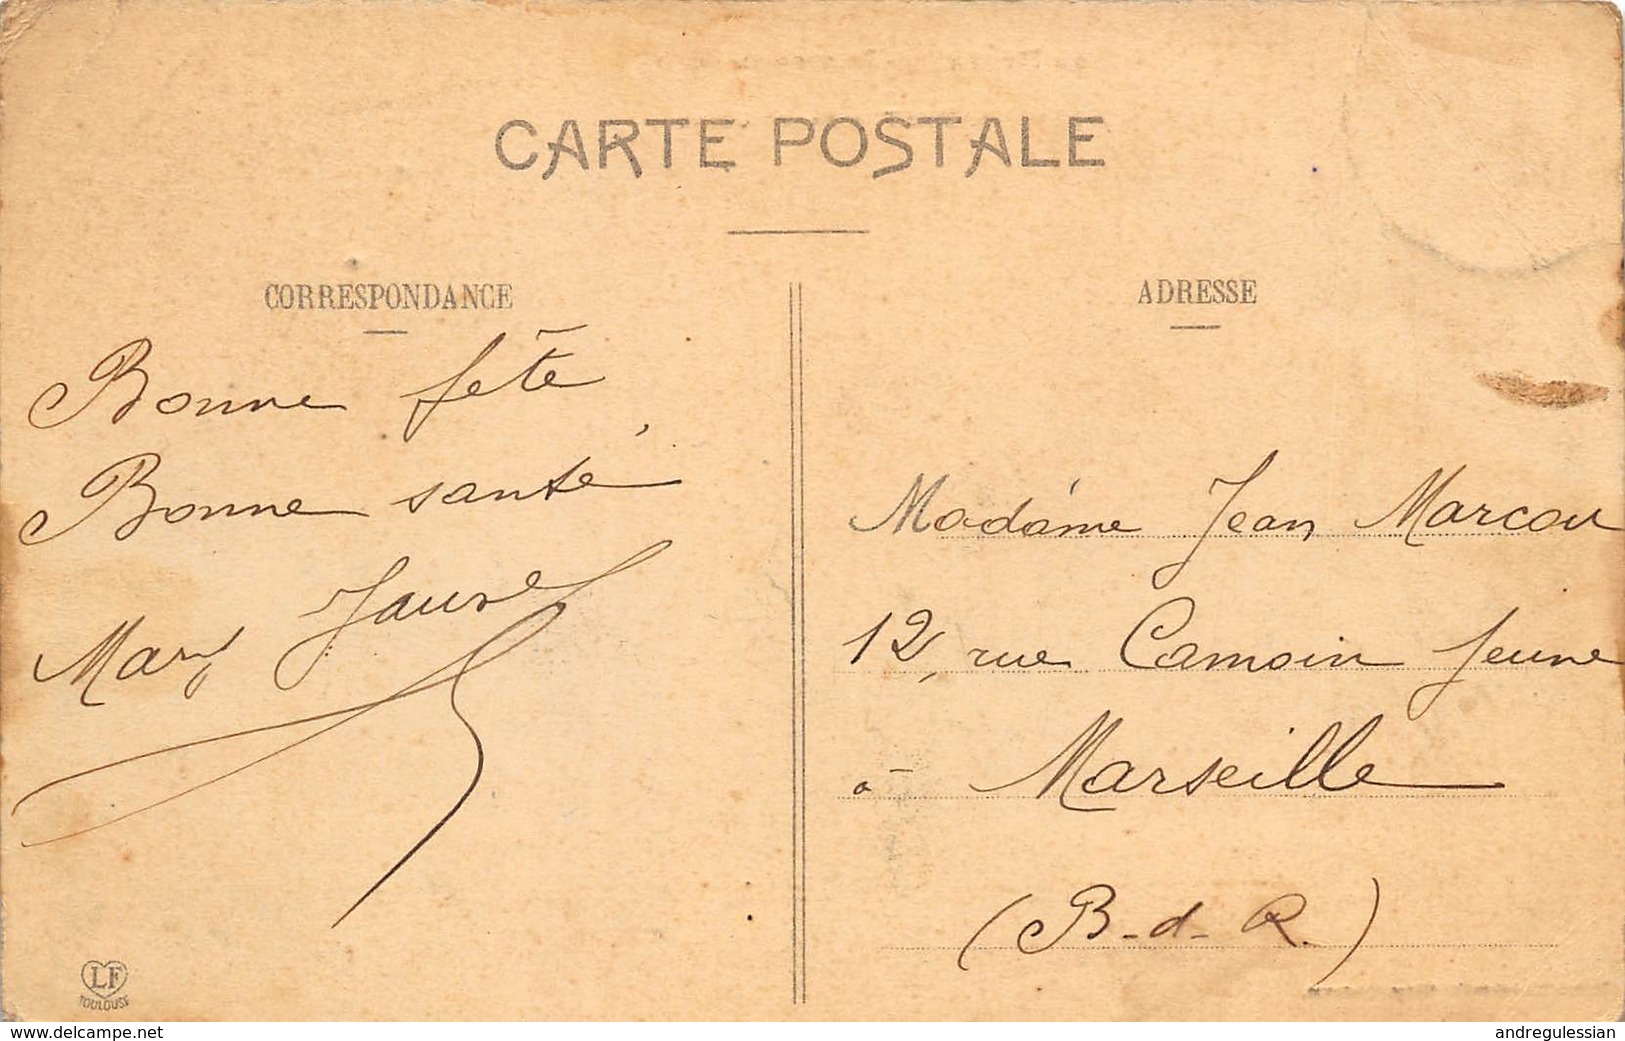 CARTE POSTALE
CORRESPONDANCE
Bonne fête
Bonne santé
ADRESSE
Madame Jean Marcou
12, rue Camoin Jeune
à Marseille
(B-d-R.)
LF
TOULOUSE
www.delcampe.net
andregulessian